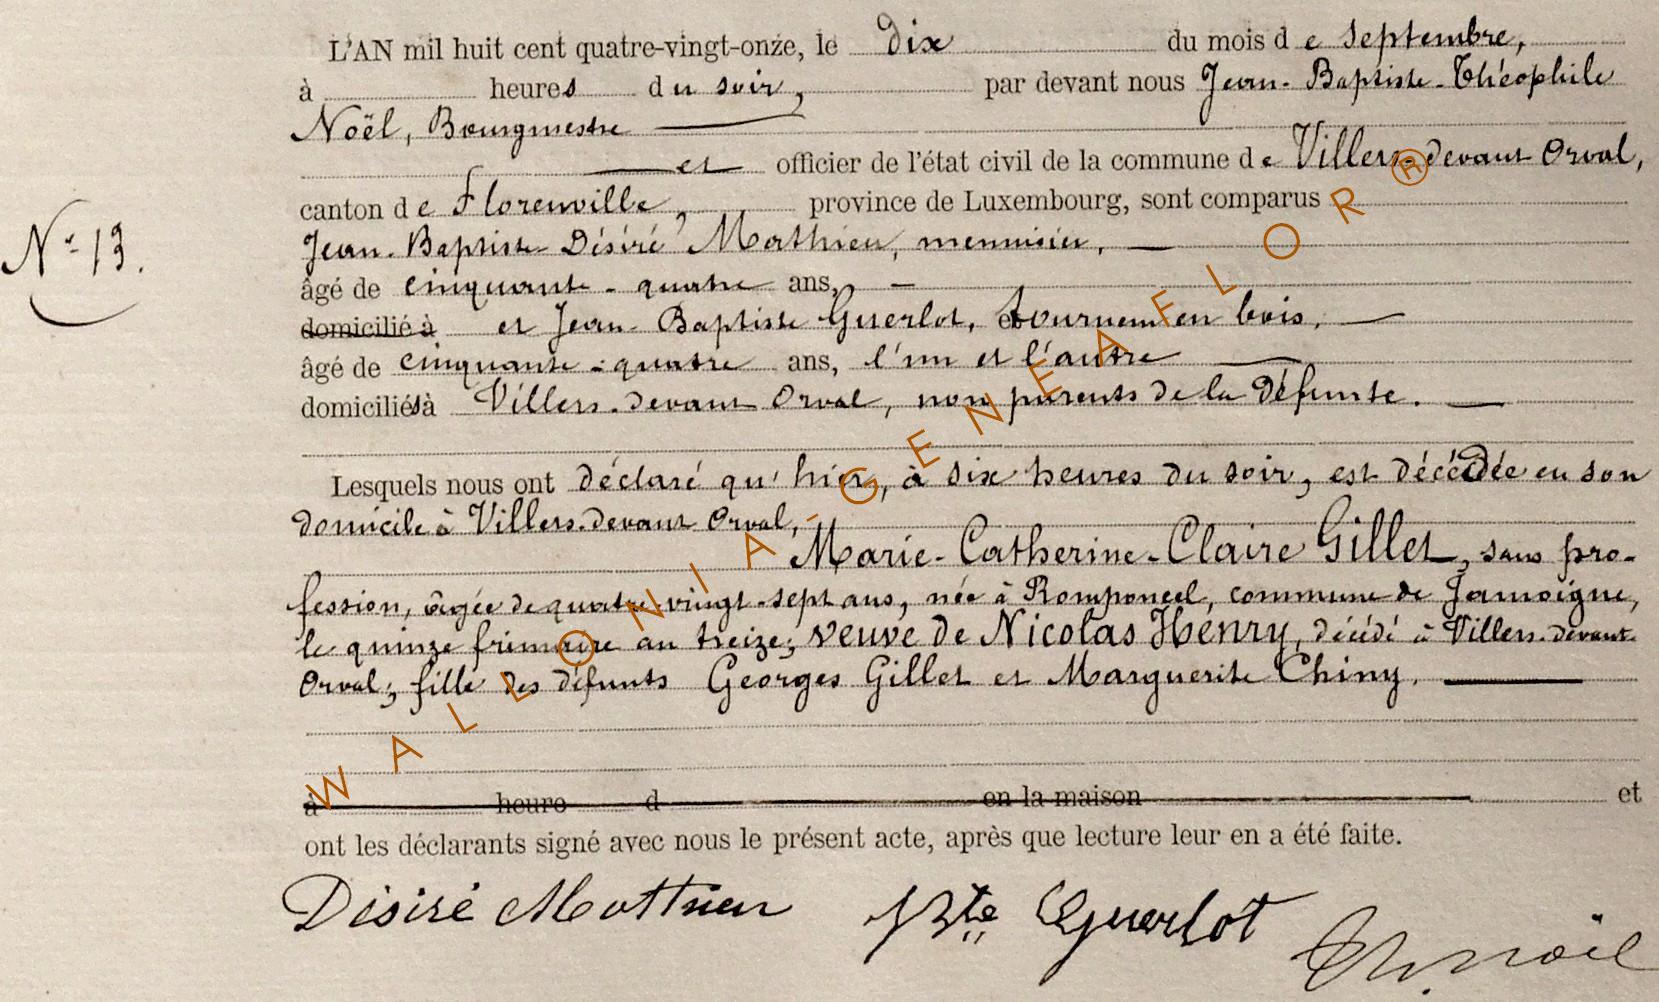 L'AN mil huit cent quatre-vingt-onze, le dix du mois de septembre,
à heures du soir, par devant nous Jean-Baptiste-Théophile
Noël, Bourgmestre
et officier de l'état civil de la commune de Villers-devant Orval,
canton de Florenville, province de Luxembourg, sont comparus
Jean-Baptiste-Désiré Mathieu, menuisier,
N° 13.
âgé de cinquante-quatre ans,
domicilié à et Jean-Baptiste Guerlot, tourneur en bois,
âgé de cinquante-quatre ans, l'un et l'autre
domiciliés à Villers-devant Orval, non parents de la défunte.
Lesquels nous ont déclaré qu'hier, à six heures du soir, est décédée en son
domicile à Villers-devant Orval,
Marie-Catherine-Claire Gillet, sans pro-
fession, âgée de quatre-vingt-sept ans, née à Romponcel, commune de Jamoigne,
le quinze frimaire an treize; veuve de Nicolas Henry, décédé à Villers-devant-
Orval; fille des défunts Georges Gillet et Marguerite Chiny.
à heure d en la maison et
ont les déclarants signé avec nous le présent acte, après que lecture leur en a été faite.
Désiré Mathieu JBte Guerlot Th. Noël
WALLONIA-GENEAFLOR®